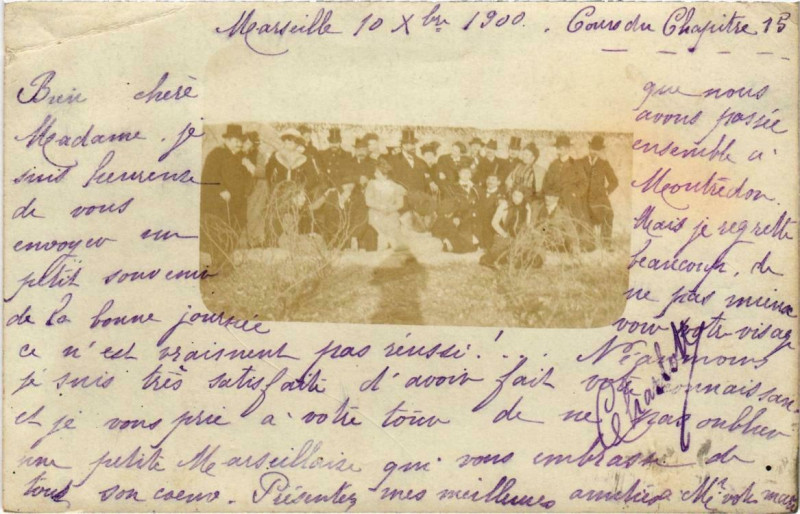 Marseille 10 Xbre 1900. Cours du Chapitre 15
Bien chère
Madame, je
suis heureuse
de vous
envoyer un
petit souvenir
de la bonne journée
que nous
avons passée
ensemble à
Montredon.
Mais je regrette
beaucoup, de
ne pas mieux
voir votre visage
ce n'est vraiment pas réussi!... Néanmoins
je suis très satisfaite d'avoir fait votre connaissan-
et je vous prie à votre tour de ne pas oublier
une petite Marseillaise qui vous embrasse de
tout son coeur. Présentez mes meilleures amitiés à Mr votre mari
Charlotte